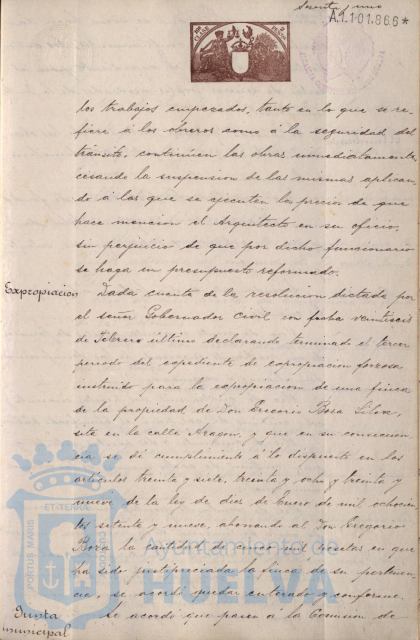 Sesenta y uno
A.1.101.866*
los trabajos empezados, tanto en lo que se re-
fiere á los obreros como á la seguridad del
tránsito, continúen las obras inmediatamente
cesando la suspension de las mismas aplican-
do á las que se ejecuten los precios de que
hace mencion el Arquitecto en su oficio,
sin perjuicio de que por dicho funcionario
se haga un presupuesto reformado.
Expropiacion Dada cuenta de la resolucion dictada por
el señor Gobernador Civil con fecha veintiseis
de Febrero último declarando terminado el tercer
periodo del expediente de expropiacion forzosa
instruido para la expropiacion de una finca
de la propiedad de Don Gregorio Bora
sita en la calle Aragon, y que en su consecuen-
cia se dé cumplimiento á lo dispuesto en los
artículos treinta y siete, treinta y ocho y treinta y
nueve de la ley de diez de Enero de mil ochocien-
tos setenta y nueve, abonando al Don Gregorio
Bora la cantidad de cinco mil pesetas en que
ha sido justipreciada la finca de su pertenen-
cia, se acordó quedar enterado y conforme.
Junta municipal Se acordó que pasen á la Comision de
PORTUS MARIS ET TERRAE CUSTODIA
Ayuntamiento de
HUELVA